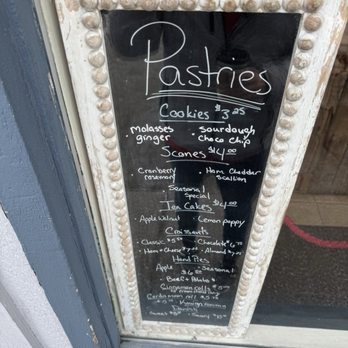 Pastries
Cookies $3.25
molasses ginger
• sourdough choco chip
Scones $4.00
• Cranberry rosemary
• Ham Cheddar Scallion
• Seasonal Special
Tea Cakes $4.00
• Apple Walnut • Lemon poppy
Croissants
• Classic • Chocolate
• Ham & Cheese • Almond
Hand Pies
Apple • Seasonal
• Beef & Potato
Cinnamon roll
Cardamom roll
Morning
Sweet Savory